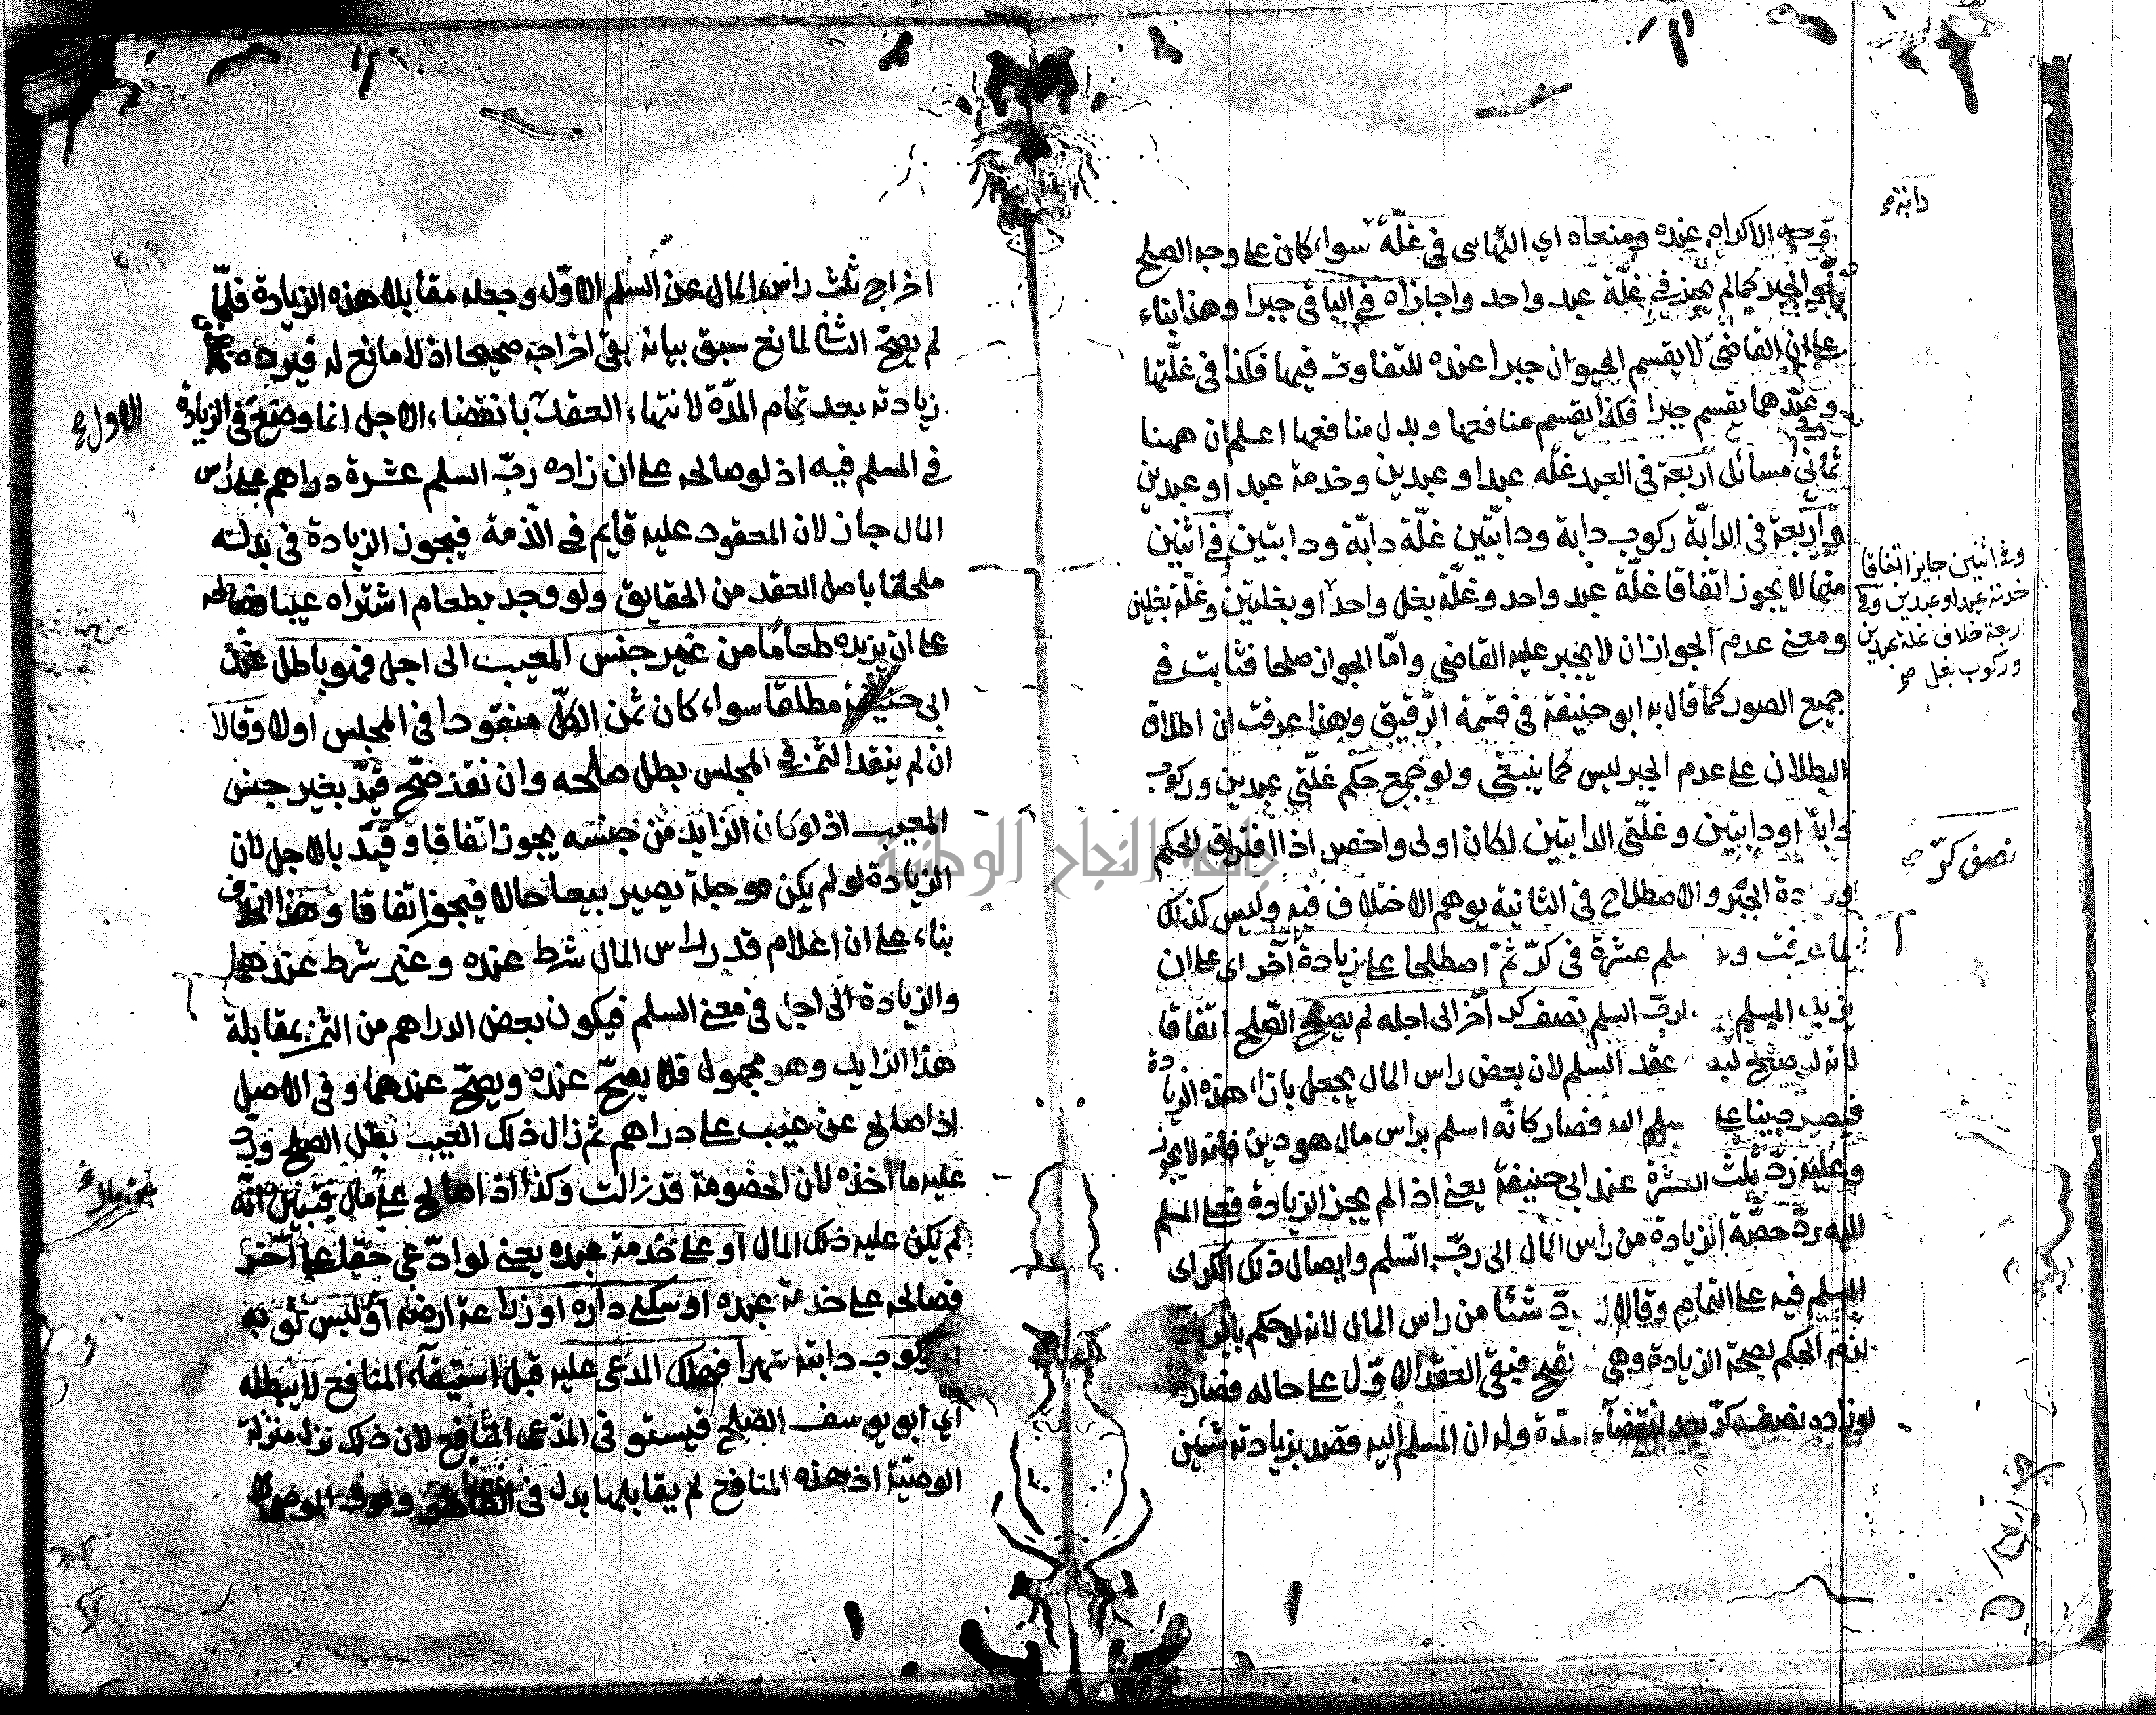 دابة صح
وجه الاكراه عنده ومنعاه اي التهاىى في غلة سواء كان على وجه الصلح
او الجبر كما لم يجز في غلة عبد واحد واجازاه في الباقي جبرا وهذا بناء
على ان القاضي لا يقسم الحيوان جبرا عنده للتفاوت فيها فكذا في غلتها
وعندهما يقسم جبرا فكذا يقسم منافعها وبدل منافعها اعلم ان ههنا
ثماني مسائل اربعة في العبد غلة عبد او عبدين وخدمة عبد او عبدين
واربعة في الدابة ركوب دابة ودابتين غلة دابة ودابتين في اثنين
منها لا يجوز اتفاقا غلة عبد واحد وغلة بغل واحد او بغلين وغلة بغلين
وفي اثنين جايز اتفاقا
خدمة عبد او عبدين وفي
اربعة خلاف غلة عبدين
وركوب بغل صح
ومعنى عدم الجواز ان لا يجبر عليه القاضي واما الجواز صلحا فثابت في
جميع الصور كما قال به ابو حنيفة في قسمة الرقيق وبهذا عرفت ان اطلاق
البطلان على عدم الجبر ليس كما ينبغي ولو جمع حكم غلتي عبدين وركوب
دابة او دابتين وغلتي الدابتين لكان اولى واخصر اذ افتراق الحكم
نصف كرّ صح
الجبر والاصطلاح في الثانية يوهم الاختلاف فيه وليس كذلك
لما عرفت عشرة في كرّ ثم اصطلحا على زيادة آخر اى على ان
يزيد المسلم لرب السلم نصف كر آخر الى اجله لم يصح الصلح اتفاقا
لانه لو صح عقد السلم لان بعض راس المال يجعل بازاء هذه الزيادة
فيصير دينا على المسلم اليه فصار كانه اسلم براس مال هو دين فانه لا يجوز
وعليه رد ثلث العشرة عند ابي حنيفة يعني اذا لم يجز الزيادة فعلى المسلم
اليه رد حصة الزيادة من راس المال الى رب السلم وايصال ذلك الكر اى
المسلم فيه على التمام وقالا لا يرد شئا من راس المال لانه لو حكم بالرد
لزم الحكم بصحة الزيادة وهي فيبقى العقد الاول على حاله فصار
لو زاده نصف كرّ بعد انقضاء المدة وله ان المسلم اليه قصد بزيادته شيئين
اخراج ثلث راس المال عن السلم الاول وجعله مقابلا لهذه الزيادة فلما
لم يصح الثاني لمانع سبق بيانه بقي اخراجه صحيحا اذ لا مانع له فيرده
زيادته بعد تمام المدة لانتهاء العقد بانقضاء الاجل انما وضع في الزيادة
الاول صح
في المسلم فيه اذ لو صالحه على ان زاده رب السلم عشرة دراهم على راس
المال جاز لان المعقود عليه قايم في الذمة فيجوز الزيادة في بدله
ملحقا باصل العقد من الحقايق ولو وجد بطعام اشتراه عيبا فصالحه
على ان يزيده طعاما من غير جنس المعيب الى اجل فهو باطل عند
ابى حنيفة مطلقا سواء كان ثمن الكل منقودا في المجلس اولا وقالا
ان لم ينقد الثمن في المجلس بطل صلحه وان نقد صح قيد بغير جنس
المعيب اذ لو كان الزايد من جنسه يجوز اتفاقا وقيد بالاجل لان
الزيادة لو لم يكن موجلة يصير بيعا حالا فيجوز اتفاقا وهذا الخلاف
بناء على ان اعلام قدر راس المال شرط عنده وغير شرط عندهما
والزيادة الى اجل في معنى السلم فيكون بعض الدراهم من الثمن بمقابلة
هذا الزايد وهو مجهول فلا يصح عنده ويصح عندهما وفي الاصل
اذا صالح عن عيب على دراهم ثم زال ذلك العيب بطل الصلح ورد
عليه ما اخذه لان الخصومة قد زالت وكذا اذا صالح على مال فتبين انه
لم يكن عليه ذلك المال او على خدمة عبده يعني لو ادعى حقا على آخر
فصالحه على خدمة عبده او سكنى داره او زراعة ارضه او لبس ثوبه
او ركوب دابته شهرا فهلك المدعى عليه قبل استيفاء المنافع لا يبطله
اي ابو يوسف الصلح فيستوفي المدعى المنافع لان ذلك نزل منزلة
الوصية اذ هذه المنافع لم يقابلها بدل في الظاهر